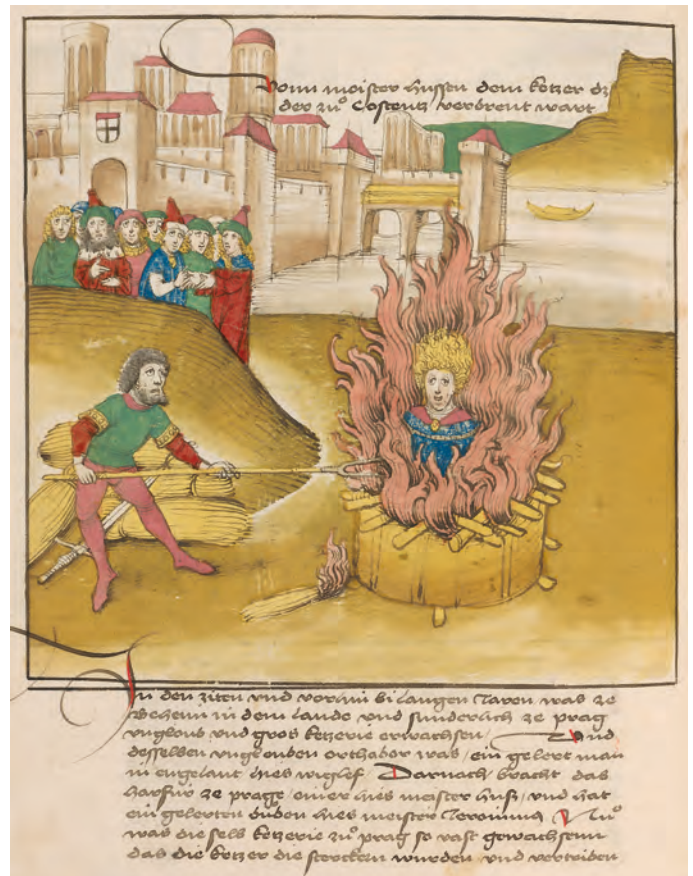 Vonn meister hussen dem ketzer dz
der zuͦ Costentz verbrent wart
In den ziten vnd vorhin bi langen Jaren was ze
Behem in dem lande vnd sunderlich ze prag
vngloub vnd gros ketzerie erwachsen / Vnd
desselben vnglouben orthaber was / ein gelert man
in engelant hies wiglef / Darnach bracht das
harfür ze prage / einer hies meister Huß / vnd hat
ein gelerten buͦben hies meister Jeronimus Nuͦ
was die selb ketzerie zuͦ prag so vast gewachsenn
das die ketzer die sterckern wurden vnd vertriben